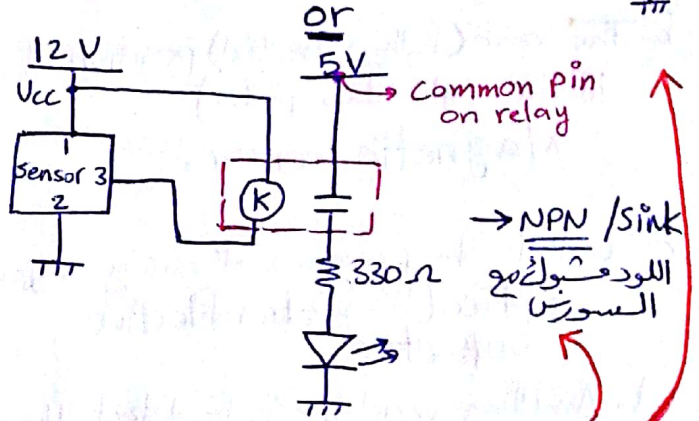 or
12 V
5V
Vcc
Common pin
on relay
1
Sensor 3
2
K
→ NPN / Sink
330 Ω
اللود مشبوك مع
السورس